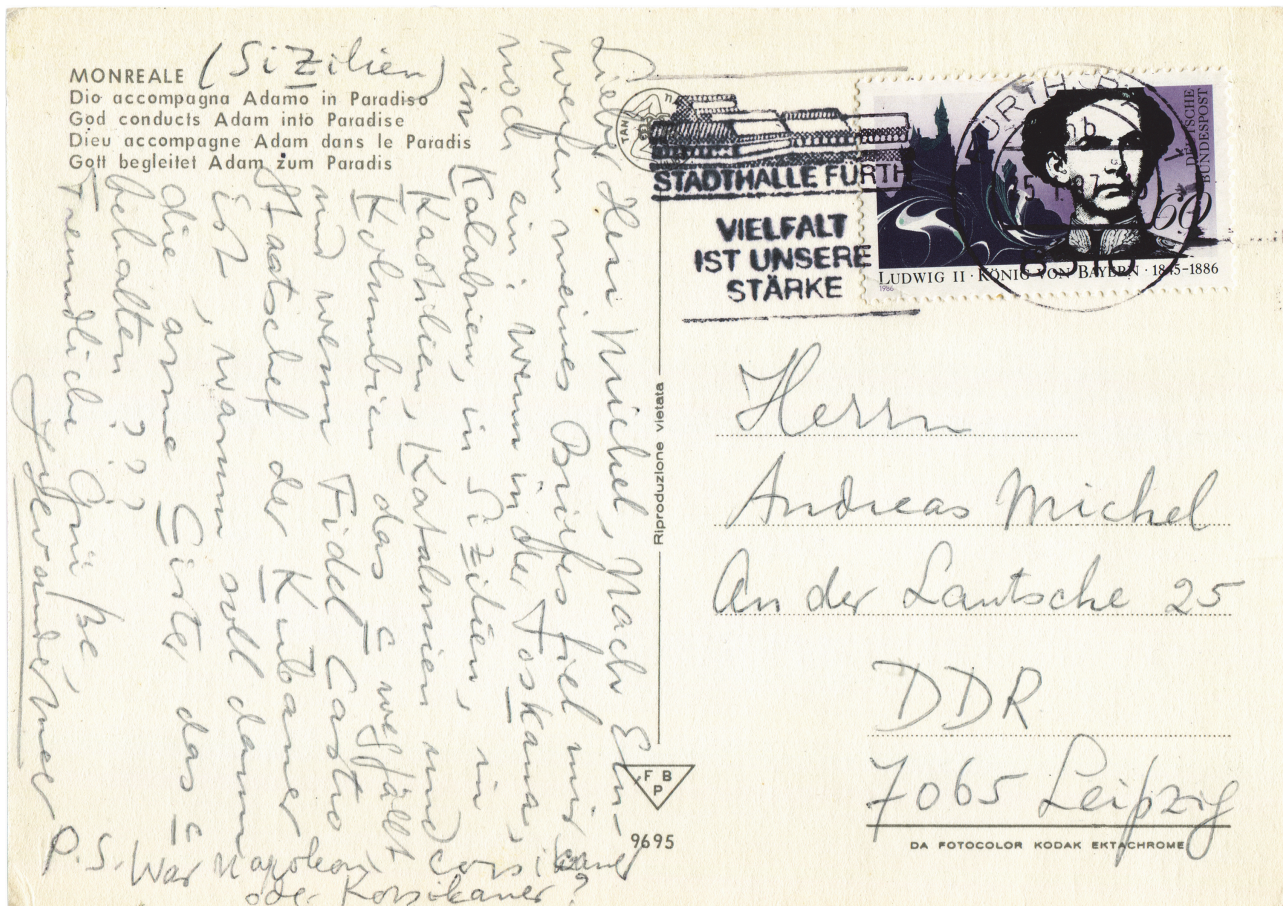 MONREALE (Sizilien)
Dio accompagna Adamo in Paradiso
God conducts Adam into Paradise
Dieu accompagne Adam dans le Paradis
Gott begleitet Adam zum Paradis
Lieber Herr Michel, Nach Ein-
werfen meines Briefes fiel mir
noch ein: wenn in der Toskana,
in Kalabrien, in Sizilien, in
Kastilien, Katalonien und
Kolumbien das c wegfällt
und wenn Fidel Castro
Staatschef der Kubaner
ist, warum soll dann
die arme Cister das c
behalten???
Freundliche Grüße,
P.S. War Napoleon Corsikaner
oder Korsikaner?
Riproduzione vietata
F B
P
9695
STADTHALLE FÜRTH
VIELFALT
IST UNSERE
STÄRKE
DEUTSCHE
BUNDESPOST
60
LUDWIG II · KÖNIG VON BAYERN · 1845-1886
1986
Herrn
Andreas Michel
An der Lautsche 25
DDR
7065 Leipzig
DA FOTOCOLOR KODAK EKTACHROME